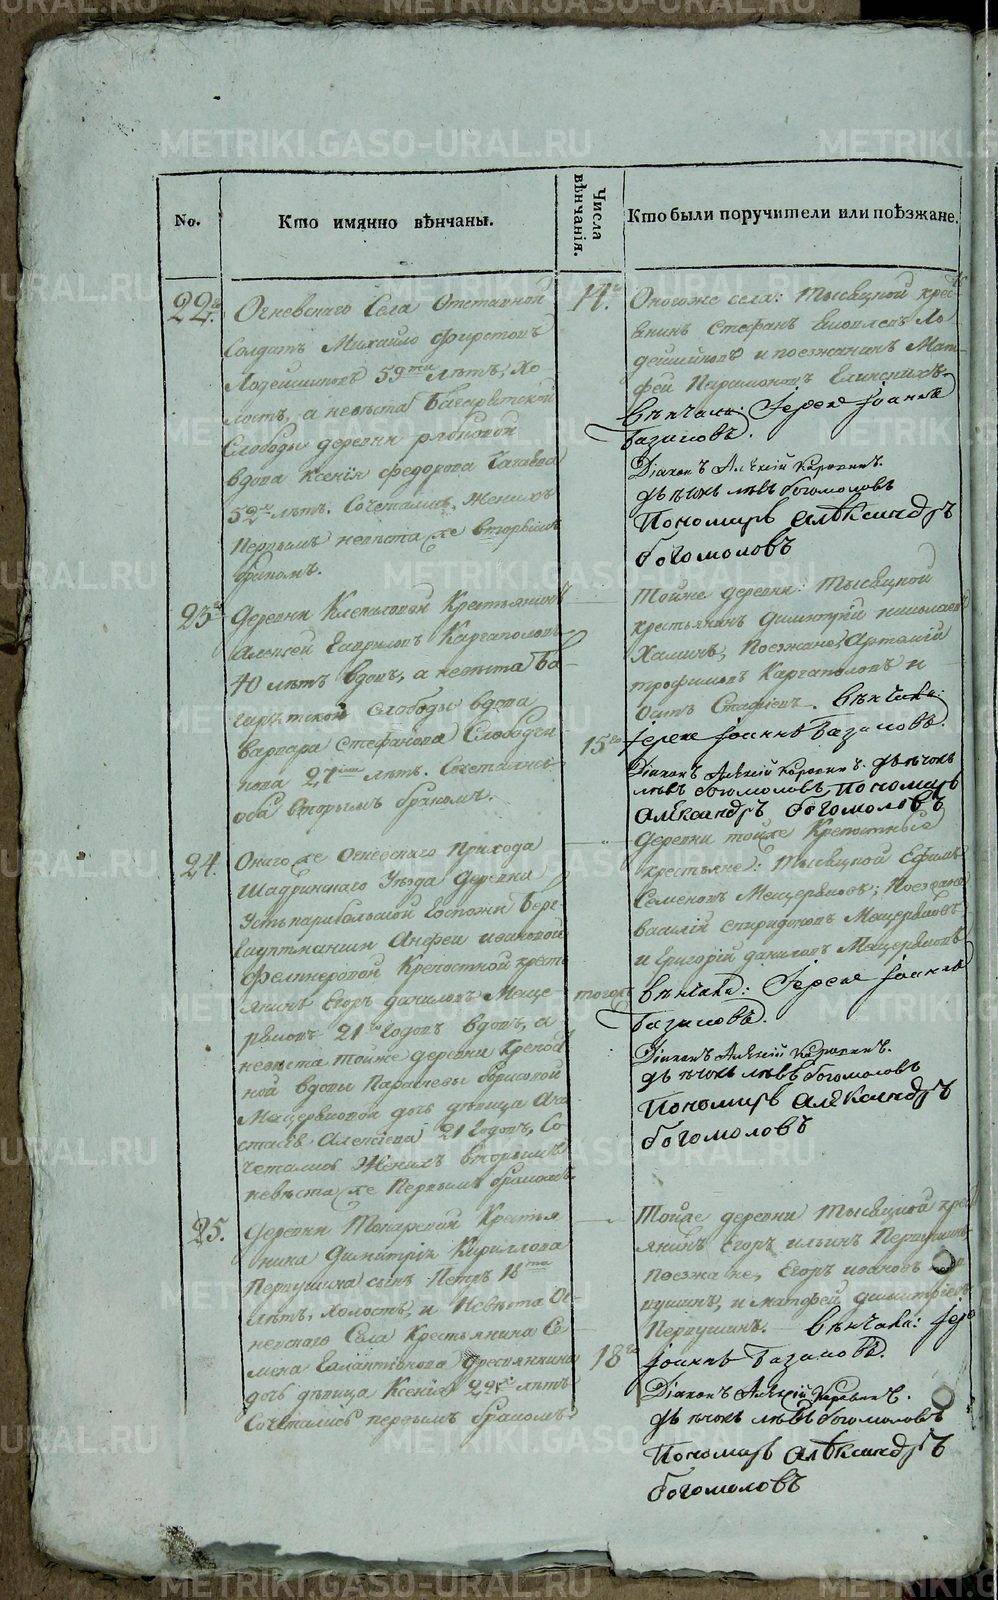 METRIKI.GASO-URAL.RU
No.
Кто имянно вѣнчаны.
Числа вѣнчанія.
Кто были поручители или поѣзжане.
22.
Огневскаго Села Отставной
Солдатъ Михайло Фирстовъ
59ти лѣтъ, Хо-
лостъ, а невѣста Багарятской
Слободы деревни
вдова Ксенія Федорова
52 лѣтъ. Сочетались Женихъ
Первымъ невѣста же вторымъ
бракомъ.
14.
Оногоже села: Тысяцкой крес-
янинъ Стефанъ
и поезжанинъ Мат-
фей Парамоновъ
Вѣнчали: Іерей Іоаннъ
Базиловъ.
Діаконъ Алексій
Дьячокъ Левъ Богомоловъ
Пономарь Александръ
Богомоловъ
23.
Деревни Клепаловой Крестьянинъ
Алексей Гавриловъ Каргаполовъ
40 лѣтъ вдовъ, а невѣста Ба-
гарятской слободы вдова
Варвара Стефанова Слободчи-
кова 27 лѣтъ. Сочетались
оба вторымъ бракомъ.
15
Тойже деревни: Тысяцкой
крестьянинъ Димитрій николаевъ
Поезжане: Артемій
трофимовъ Каргаполовъ и
Вѣнчали:
Іерей Іоаннъ Базиловъ.
Діаконъ Алексій Дьячокъ
Левъ Богомоловъ, Пономарь
Александръ Богомоловъ
24.
Онаго же Огневскаго Прихода
Шадринскаго Уѣзда Деревни
Госпожи Берг
гауптманши Анфеи ивановой
Фелкнеровой Крепостной крест
янинъ Егоръ даниловъ Меще
ряковъ 21 годовъ вдовъ, а
невѣста тойже деревни Крепос
ной вдовы Параскевы борисовой
Мещеряковой дочь дѣвица Ана
стасія Алексѣева 21 годовъ, Со
четались Женихъ вторымъ
невѣста же Первымъ бракомъ.
тогожъ
Деревни тойже Крепостные
крестьяне: Тысяцкой Ефимъ
Семеновъ Мещеряковъ; Поезжане
василій спиридоновъ Мещеряковъ
и Григорій даниловъ Мещеряковъ
Вѣнчали: Іерей Іоаннъ
Базиловъ.
Діаконъ Алексій
Дьячокъ Левъ Богомоловъ
Пономарь Александръ
Богомоловъ
25.
Деревни Токаревой Крестья
нина Димитрія Кириллова
Первушина сынъ Петръ 18
лѣтъ, холостъ, и Невѣста Ог-
невскаго Села Крестьянина Се
мена
дочь дѣвица Ксенія 22 лѣтъ
Сочетались первымъ бракомъ
18
Тойже деревни Тысяцкой крес
янинъ Егоръ ильинъ Первушинъ
поезжане, Егоръ ивановъ Перв
ушинъ, и матфей димитріевъ
Первушинъ. Вѣнчали: Іере
Іоаннъ Базиловъ.
Діаконъ Алексій
Дьячокъ Левъ Богомоловъ
Пономарь Александръ
Богомоловъ